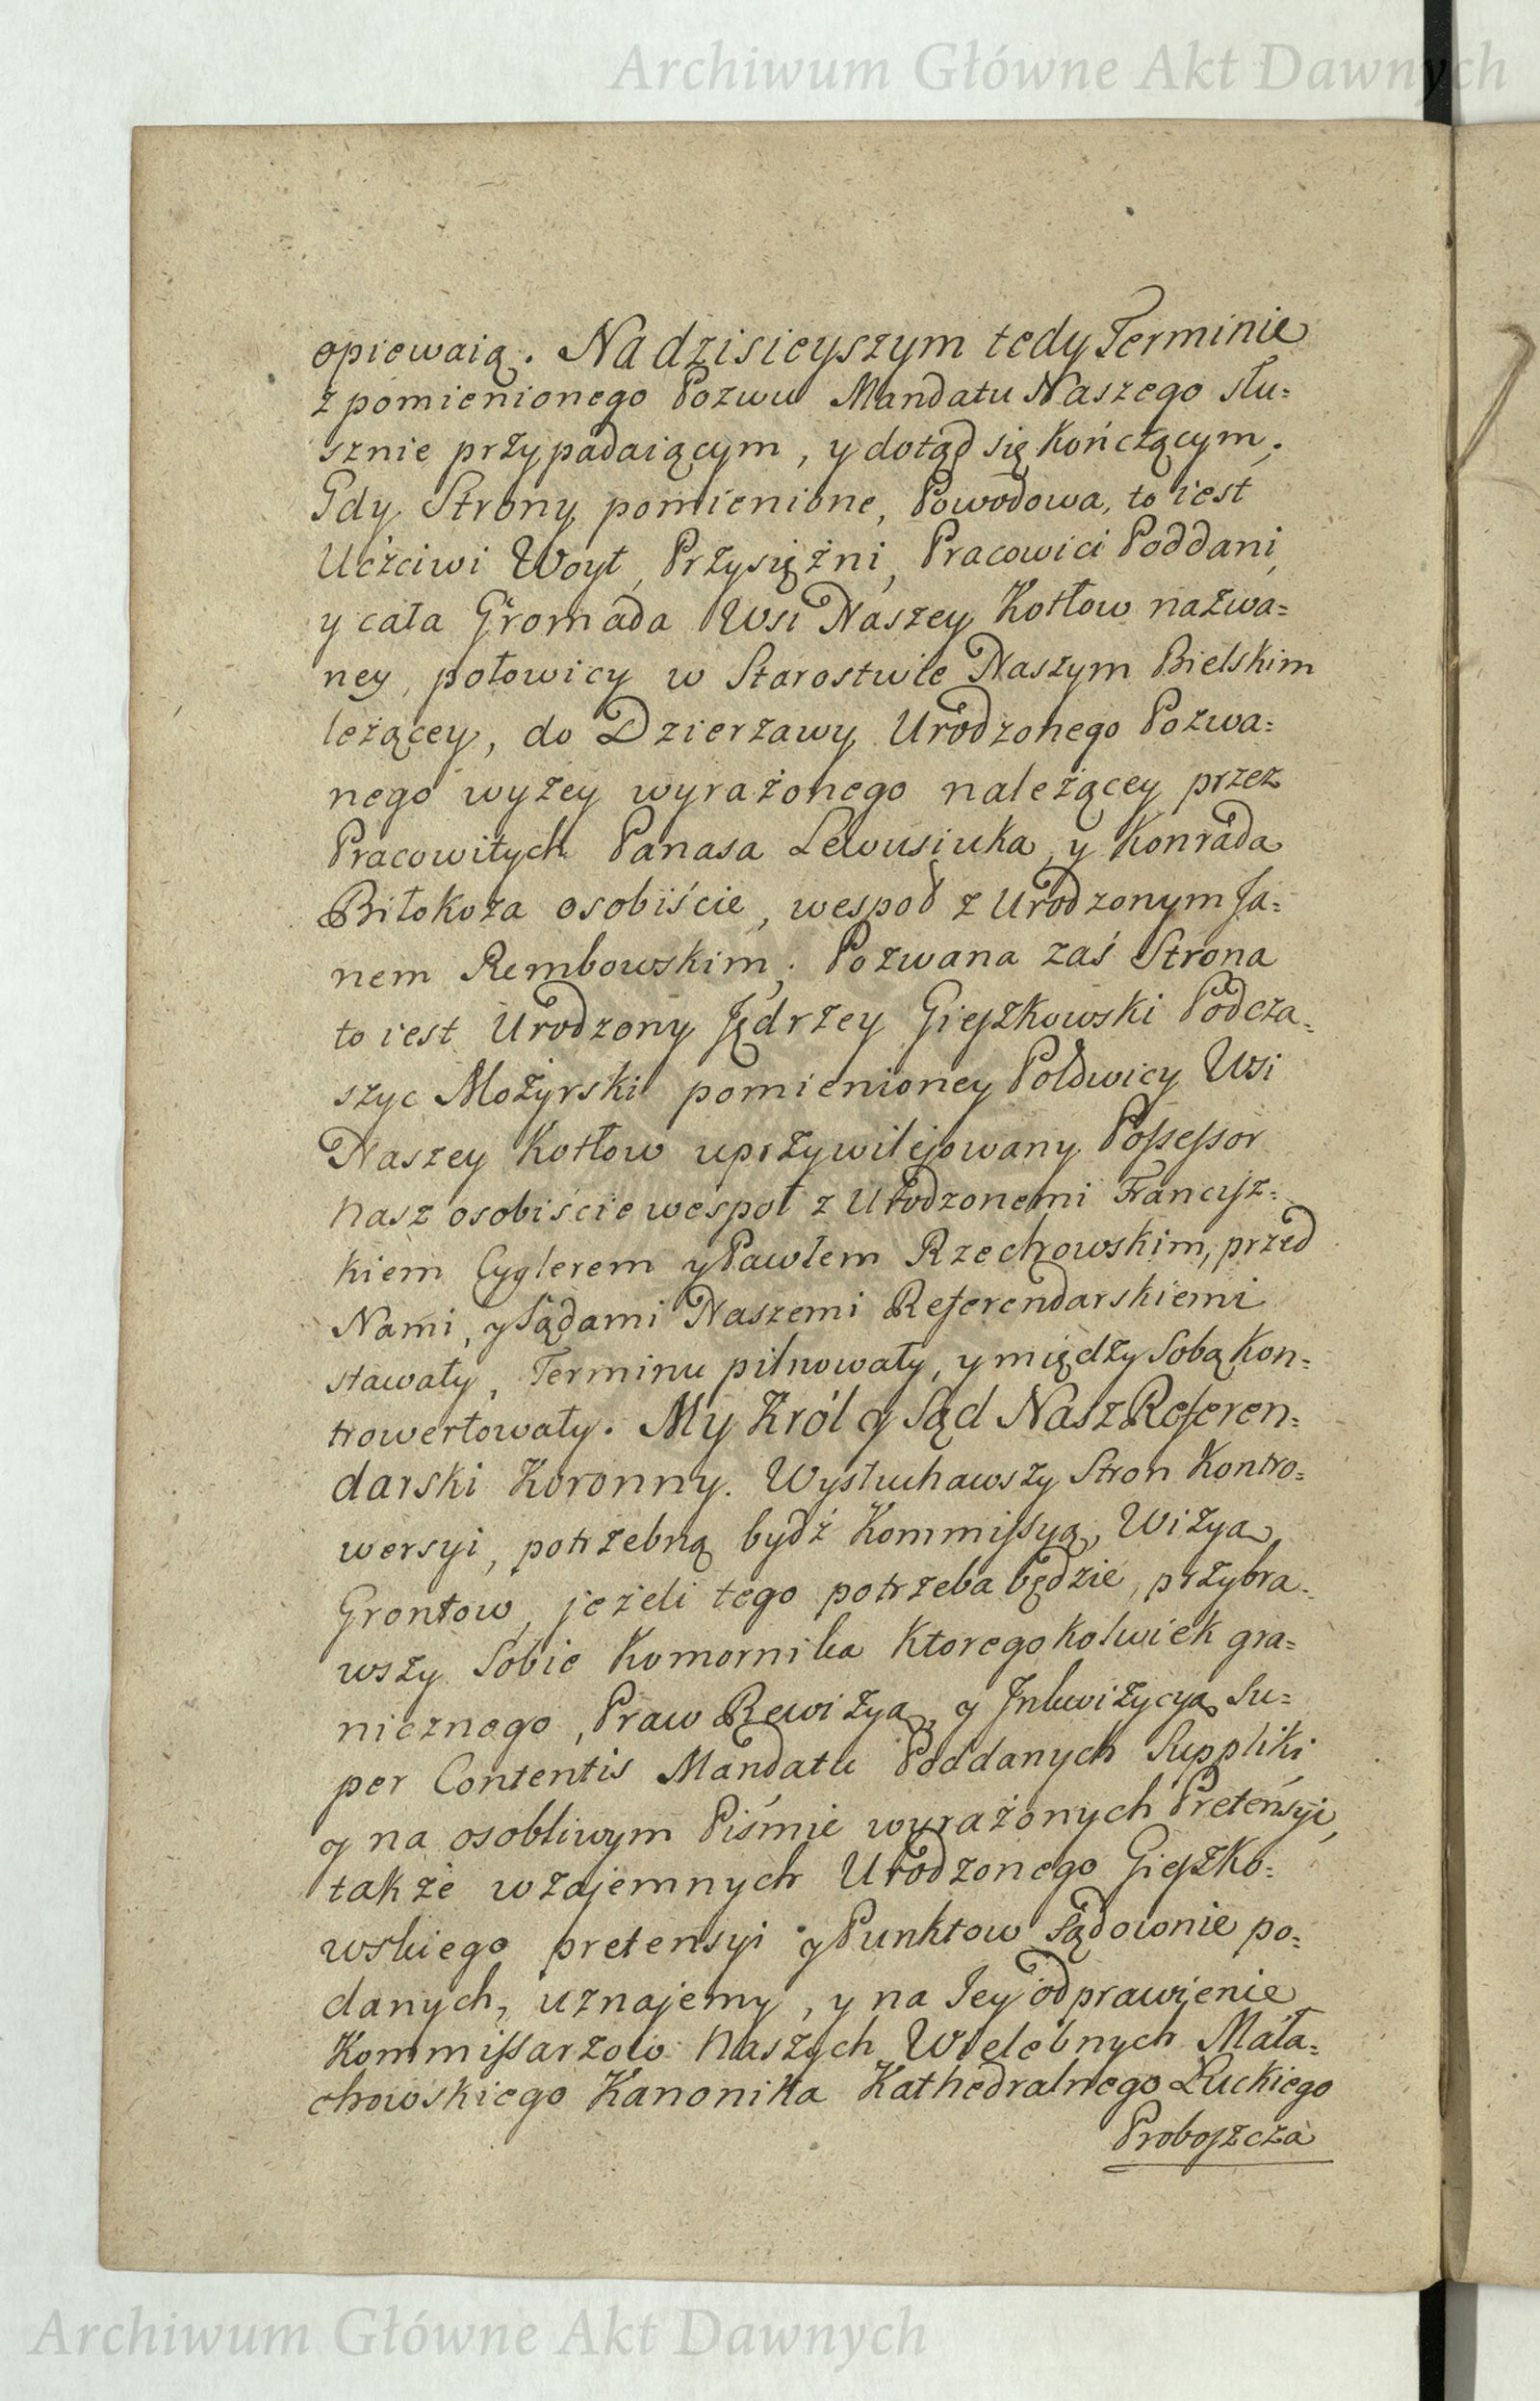 Archiwum Główne Akt Dawnych
opiewaią. Na dzisieyszym tedy Terminie
z pomienionego Pozwu Mandatu Naszego słu=
sznie przypadaiącym, y dotąd się kończącym.
Gdy Strony pomienione, Powodowa, to iest
Uczciwi Woyt, Przysiężni, Pracowici Poddani,
y cała Gromada Wsi Naszey Kotłow nazwa=
ney, połowicy w Starostwie Naszym Bielskim
leżącey, do Dzierzawy Urodzonego Pozwa=
nego wyżey wyrażonego należącey przez
Pracowitych Panasa Lewusiuka, y Konrada
Biłokoza osobiście, wespoł z Urodzonym Ja=
nem Rembowskim, Pozwana zaś Strona
to iest Urodzony Jędrzey Gięszkowski Podcza=
szyc Mozyrski pomienioney Połowicy Wsi
Naszey Kotłow uprzywilejowany Possessor
Nasz osobiście wespoł z Urodzonemi Francisz=
kiem Cyglerem y Pawłem Rzechowskim, przed
Nami, y Sądami Naszemi Referendarskiemi
stawały, Terminu pilnowały, y między Sobą Kon=
trowertowały. My Król y Sąd Nasz Referen=
darski Koronny. Wysłuchawszy Stron Kontro=
wersyi, potrzebną bydź Kommissyą, Wizyą
Grontow, jeżeli tego potrzeba będzie, przybra=
wszy Sobie Komornika Ktoregokolwiek gra=
nicznego, Praw Rewizyą, y Inkwizycyą Su=
per Contentis Mandatu Poddanych Suppliki
y na osobliwym Piśmie wyrażonych Pretensyi,
także wzajemnych Urodzonego Gięszko=
wskiego pretensyi y Punktow Sądownie po=
danych, uznajemy, y na Jey odprawienie
Kommissarzow Naszych Wielebnych Mała=
chowskiego Kanonika Kathedralnego Łuckiego
Proboszcza
Archiwum Główne Akt Dawnych